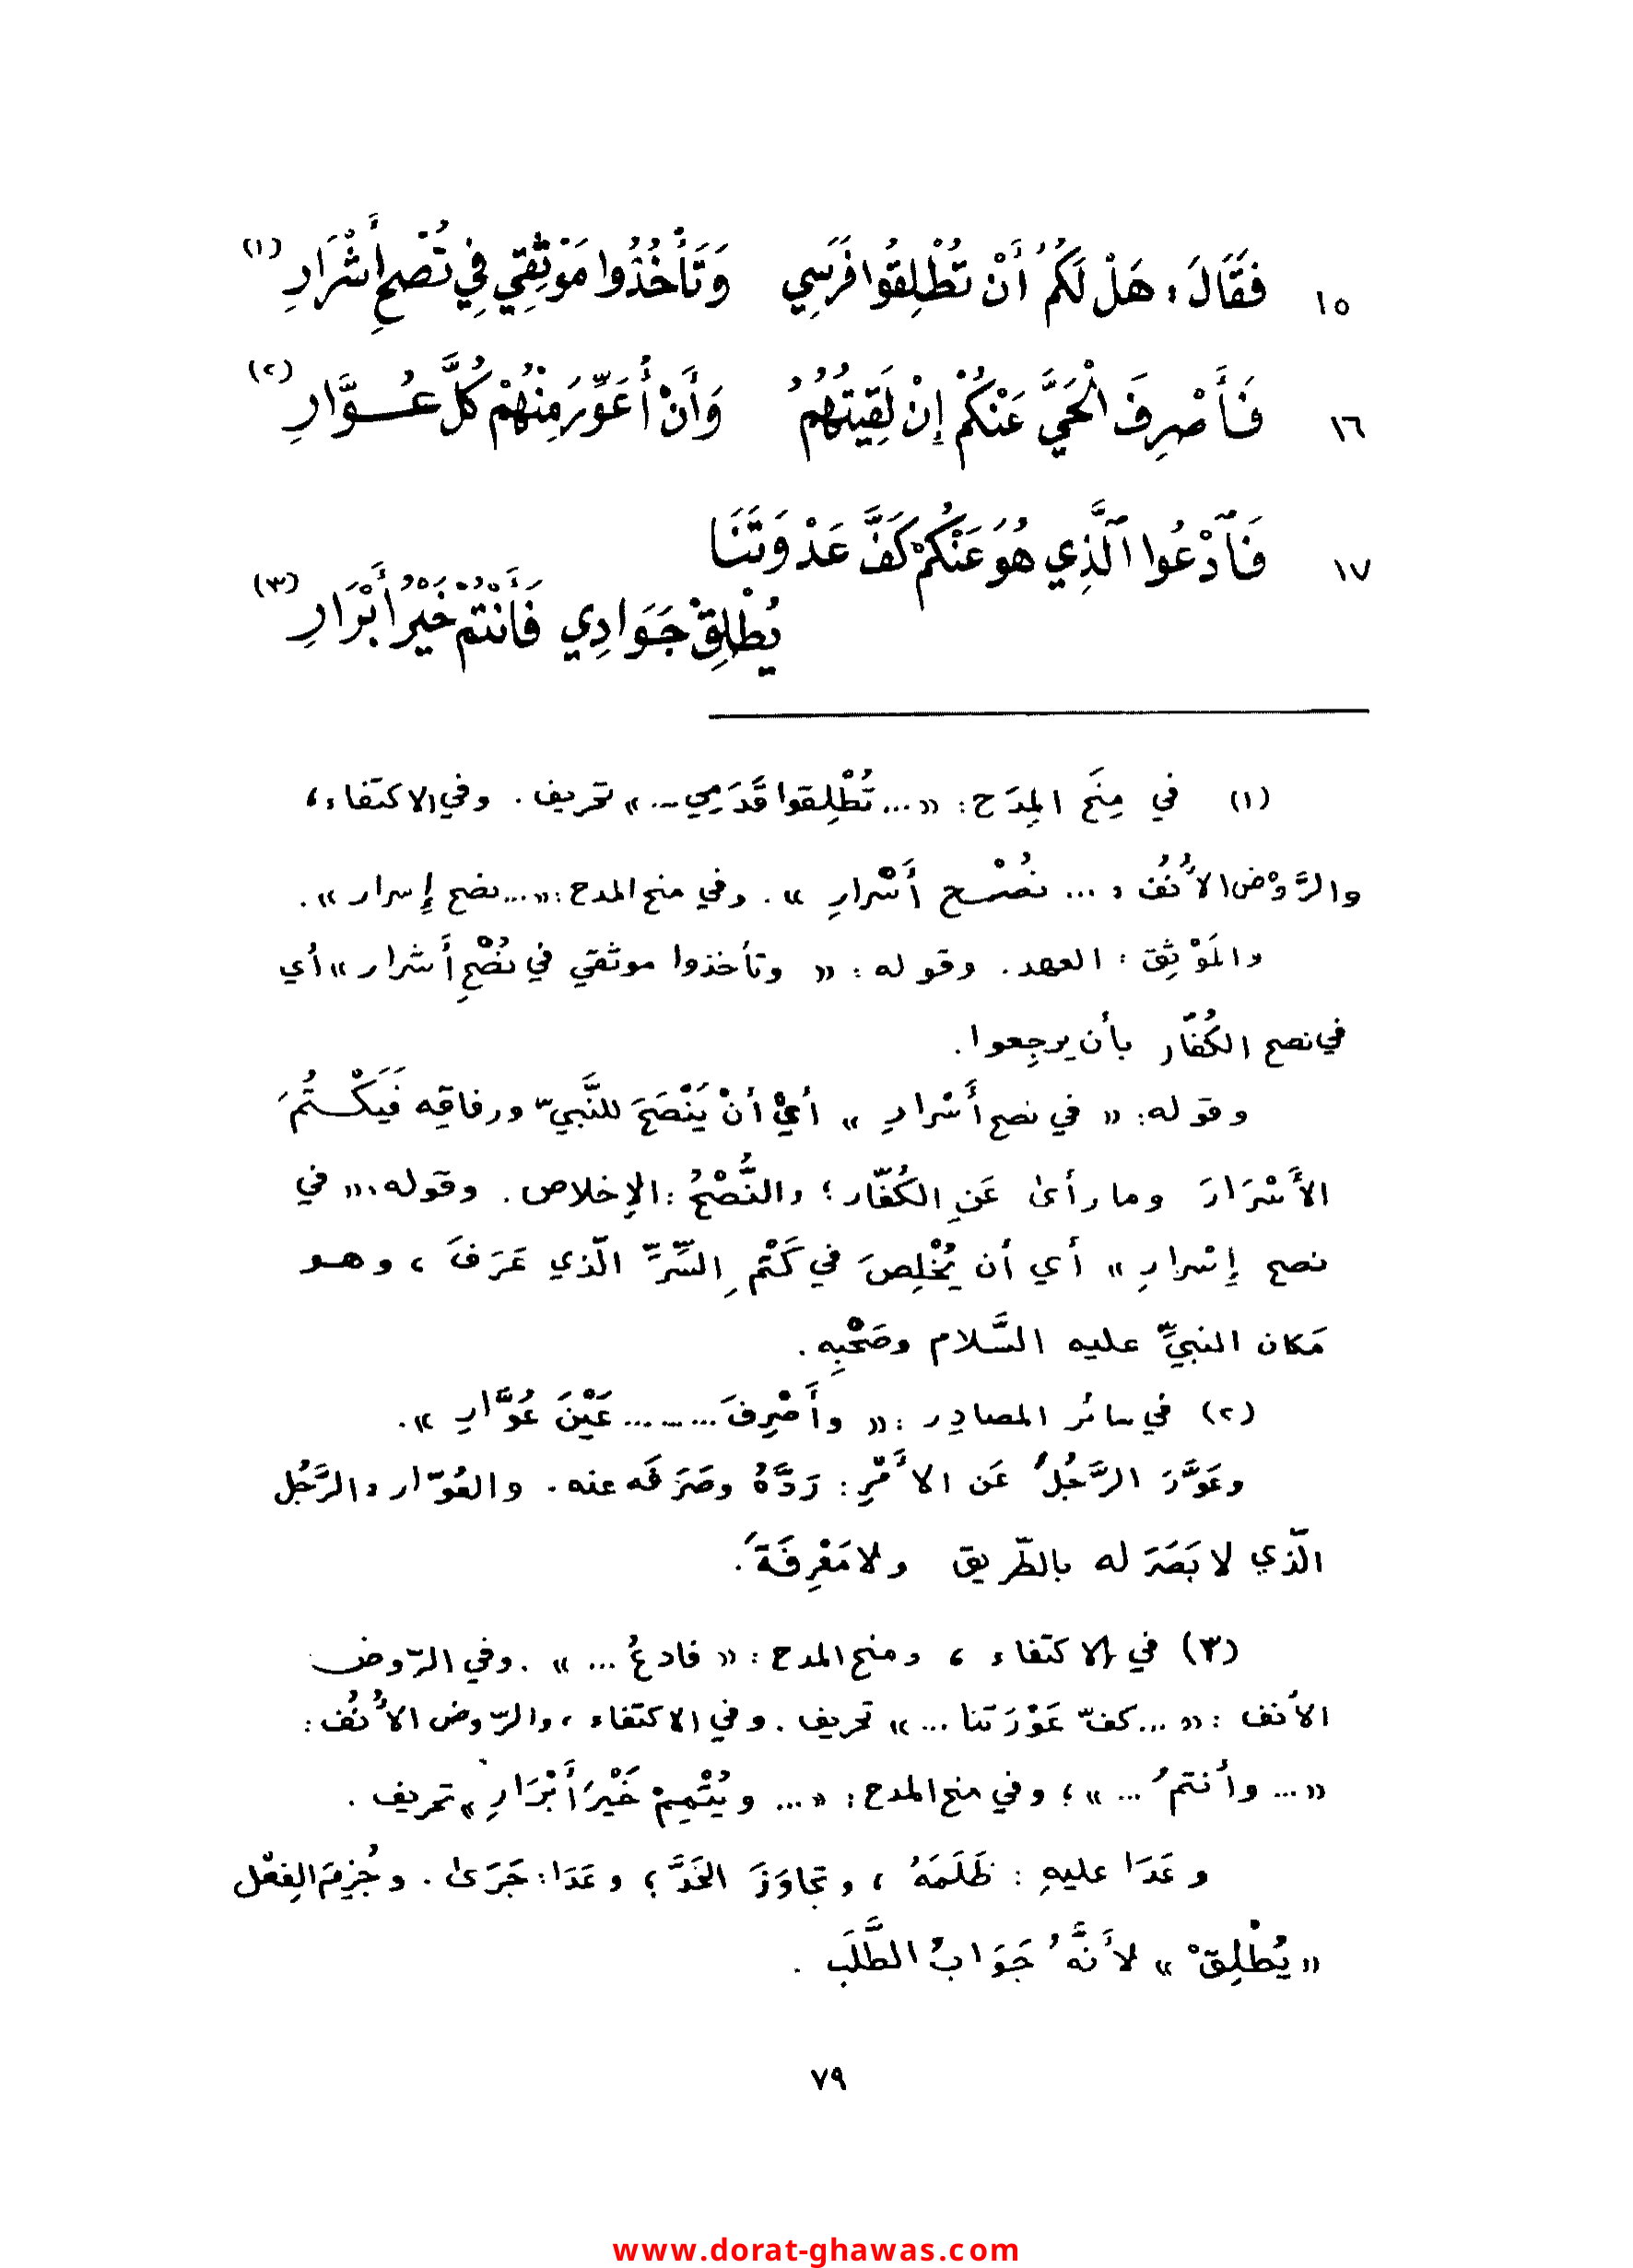 ١٥ فَقَالَ: هَلْ لَكُمُ أَنْ تُطْلِقُوا فَرَسِي وَتَأْخُذُوا مَوْثِقِي فِي نُصْحِ أَشْرَارِ (١)
١٦ فَأَصْرِفَ الْحَيَّ عَنْكُمْ إِنْ لَقِيتُهُمُ وَأَنْ أُعَوِّرَ مِنْهُمْ كُلَّ عُوَّارِ (٢)
١٧ فَٱدْعُوا ٱلَّذِي هُوَ عَنْكُمْ كَفَّ عَدْوَتَنَا
يُطْلِقْ جَوَادِي فَأَنْتُمْ خَيْرُ أَبْرَارِ (٣)
(١) في مِنَح المِدَح: «... تُطْلِقوا قَدَمِي ...» تحريف. وفي الاكتفاء،
والرَّوْض الأُنُف: ... نُصْح أَسْرارِ». وفي منح المدح: «... نصح إِسرار».
والمَوْثِق: العهد. وقوله: «وتأخذوا موثقي في نُصْحِ أَشرار» أي
في نصح الكُفّار بأن يرجِعوا.
وقوله: «في نصح أَسْرارِ» أيْ أنْ يَنْصَحَ للنَّبيّ ورفاقِه فَيَكْتُمَ
الأَسْرَارَ وما رأىٰ عَنِ الكُفّار؛ والنُّصْحُ: الإِخلاص. وقوله: «في
نصح إِسْرارِ» أي أن يُخْلِصَ في كَتْمِ السِّرِّ الّذي عَرَفَ، وهو
مَكان النبيِّ عليه السَّلام وصَحْبِه.
(٢) في سائر المصادِر: «وأَصْرِفَ ......... عَيْنَ عُوَّارِ».
وعَوَّرَ الرَّجُلُ عَن الأَمْرِ: رَدَّهُ وصَرَفَه عنه. والعُوّار: الرَّجُل
الّذي لا بَصَرَ له بالطّريق ولا مَعْرِفَةَ.
(٣) في الاكتفاء، ومنح المدح: «فادعُ ...». وفي الرّوض
الأنف: «... كفّ عَوْرَتنا ...» تحريف. وفي الاكتفاء، والرّوض الأُنُف:
«... وأنتمُ ...»؛ وفي منح المدح: «... ويُتْمِمْ خَيْرَ أَبْرَارِ» تحريف.
وعَدَا عليهِ: ظَلَمَهُ، وتجاوَزَ الحَدَّ؛ وعَدَا: جَرَىٰ. وجُزِمَ الفِعْل
«يُطْلِقْ» لأَنَّهُ جَوَابُ الطَّلَبِ.
٧٩
www.dorat-ghawas.com